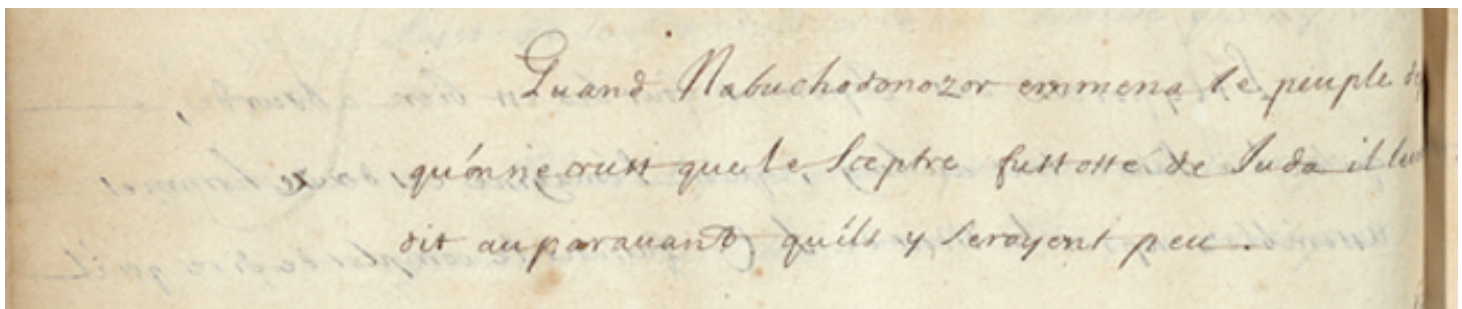 Quand Nabuchodonozor emmena le peuple
qu'on ne crust que le Sceptre fust osté de Juda il leur
dit auparauant qu'ils y seroyent peu.